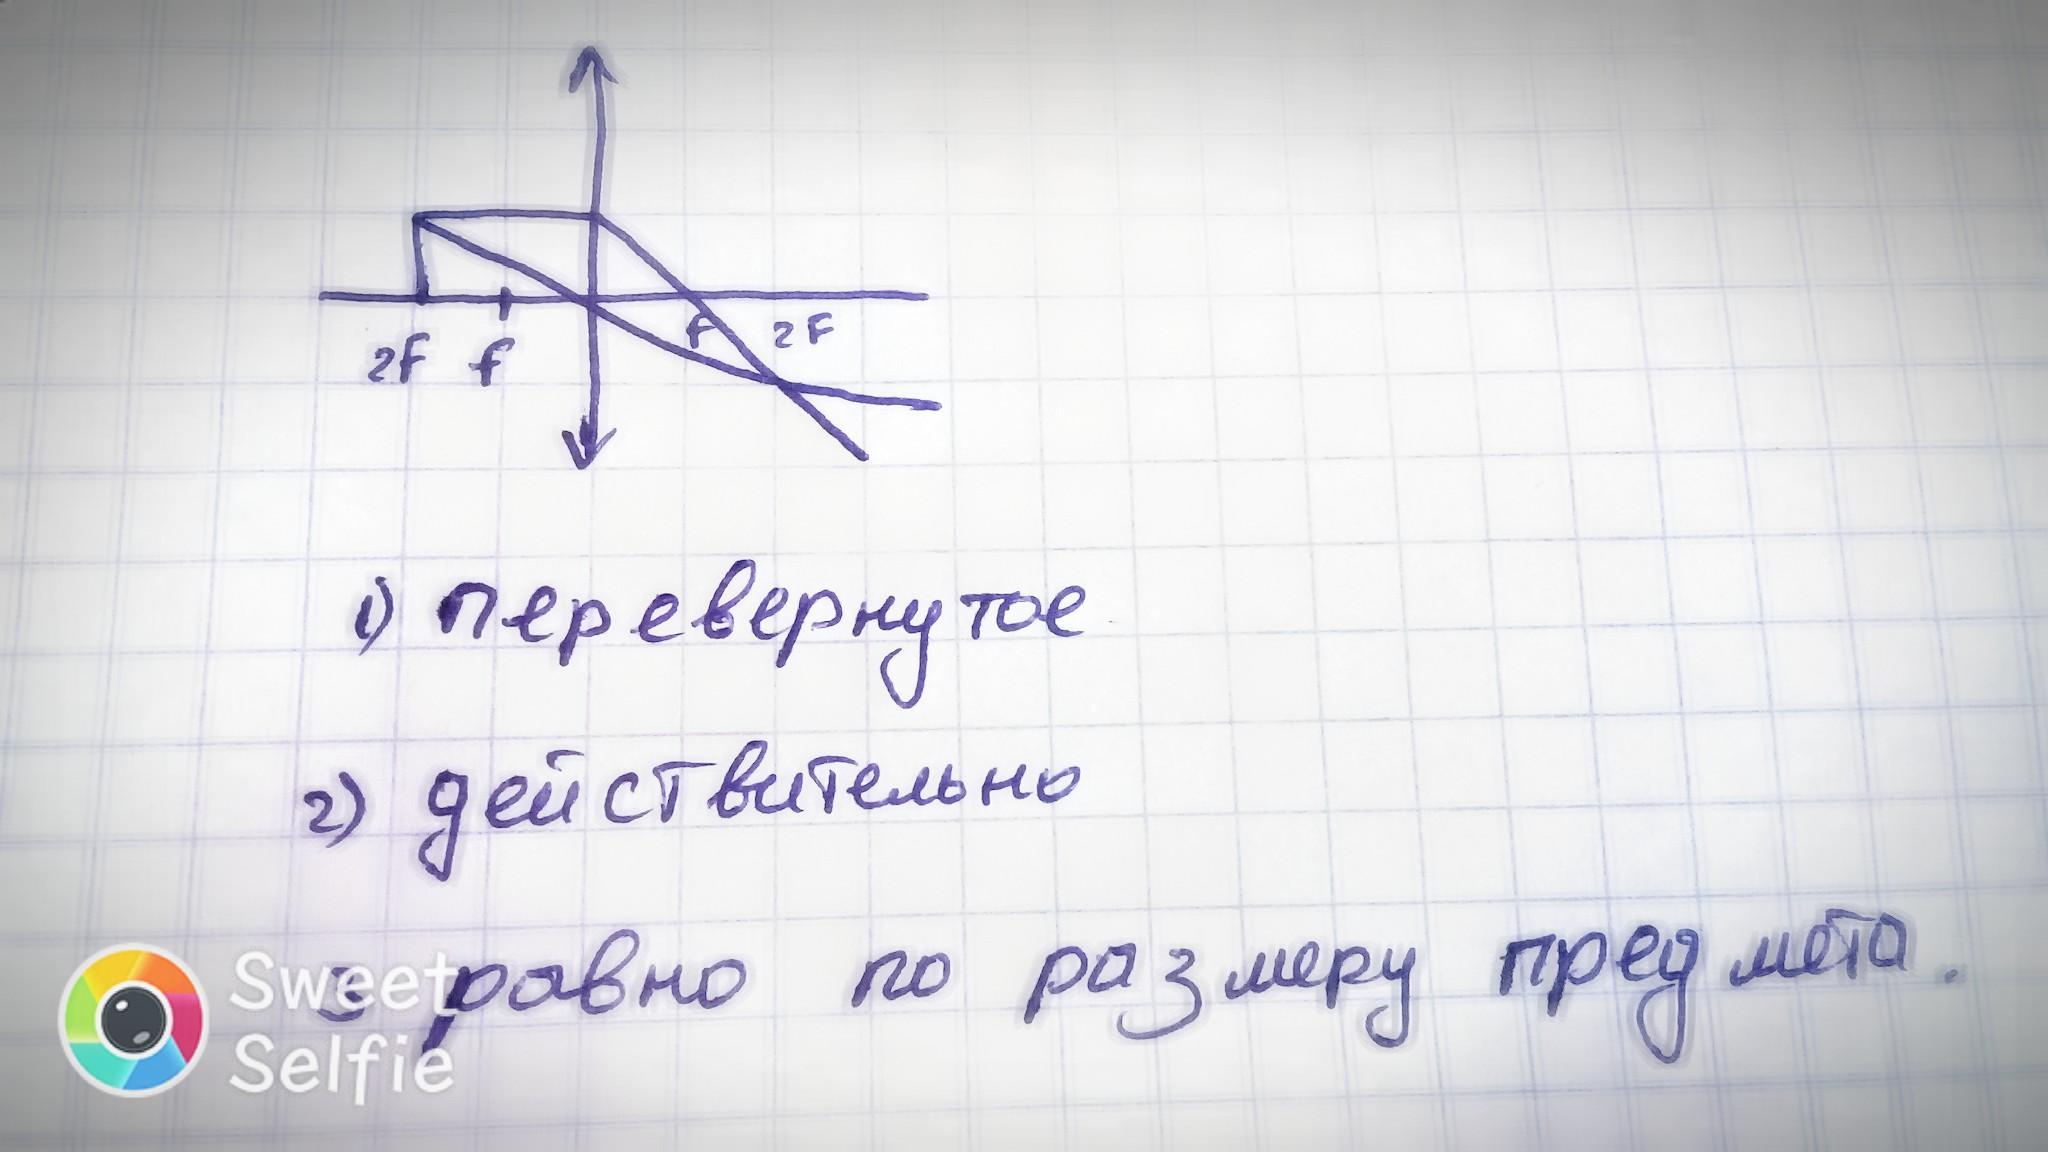 2F f F 2F
1) перевернутое
2) действительно
3 равно по размеру предмета.
Sweet
Selfie